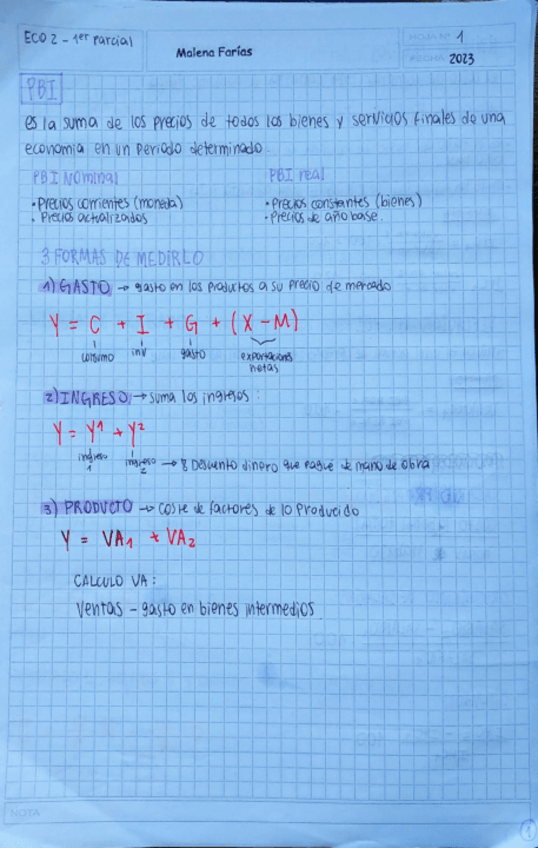 ECO 2 - 1er parcial
Malena Farías
HOJA Nº 1
FECHA 2023
PBI
es la suma de los precios de todos los bienes y servicios finales de una
economia en un periodo determinado.
PBI Nominal PBI real
• Precios corrientes (moneda) • Precios constantes (bienes)
• Precios actualizados • Precios de año base.
3 FORMAS DE MEDIRLO
1) GASTO → gasto en los productos a su precio de mercado
Y = C + I + G + (X - M)
consumo inv gasto exportaciones
netas
2) INGRESO → suma los ingresos :
Y = Y1 + Y2
ingreso
1
ingreso
2 → Descuento dinero que pagué de mano de obra
3) PRODUCTO → coste de factores de lo producido
Y = VA1 + VA2
CALCULO VA :
Ventas - gasto en bienes intermedios
NOTA
1